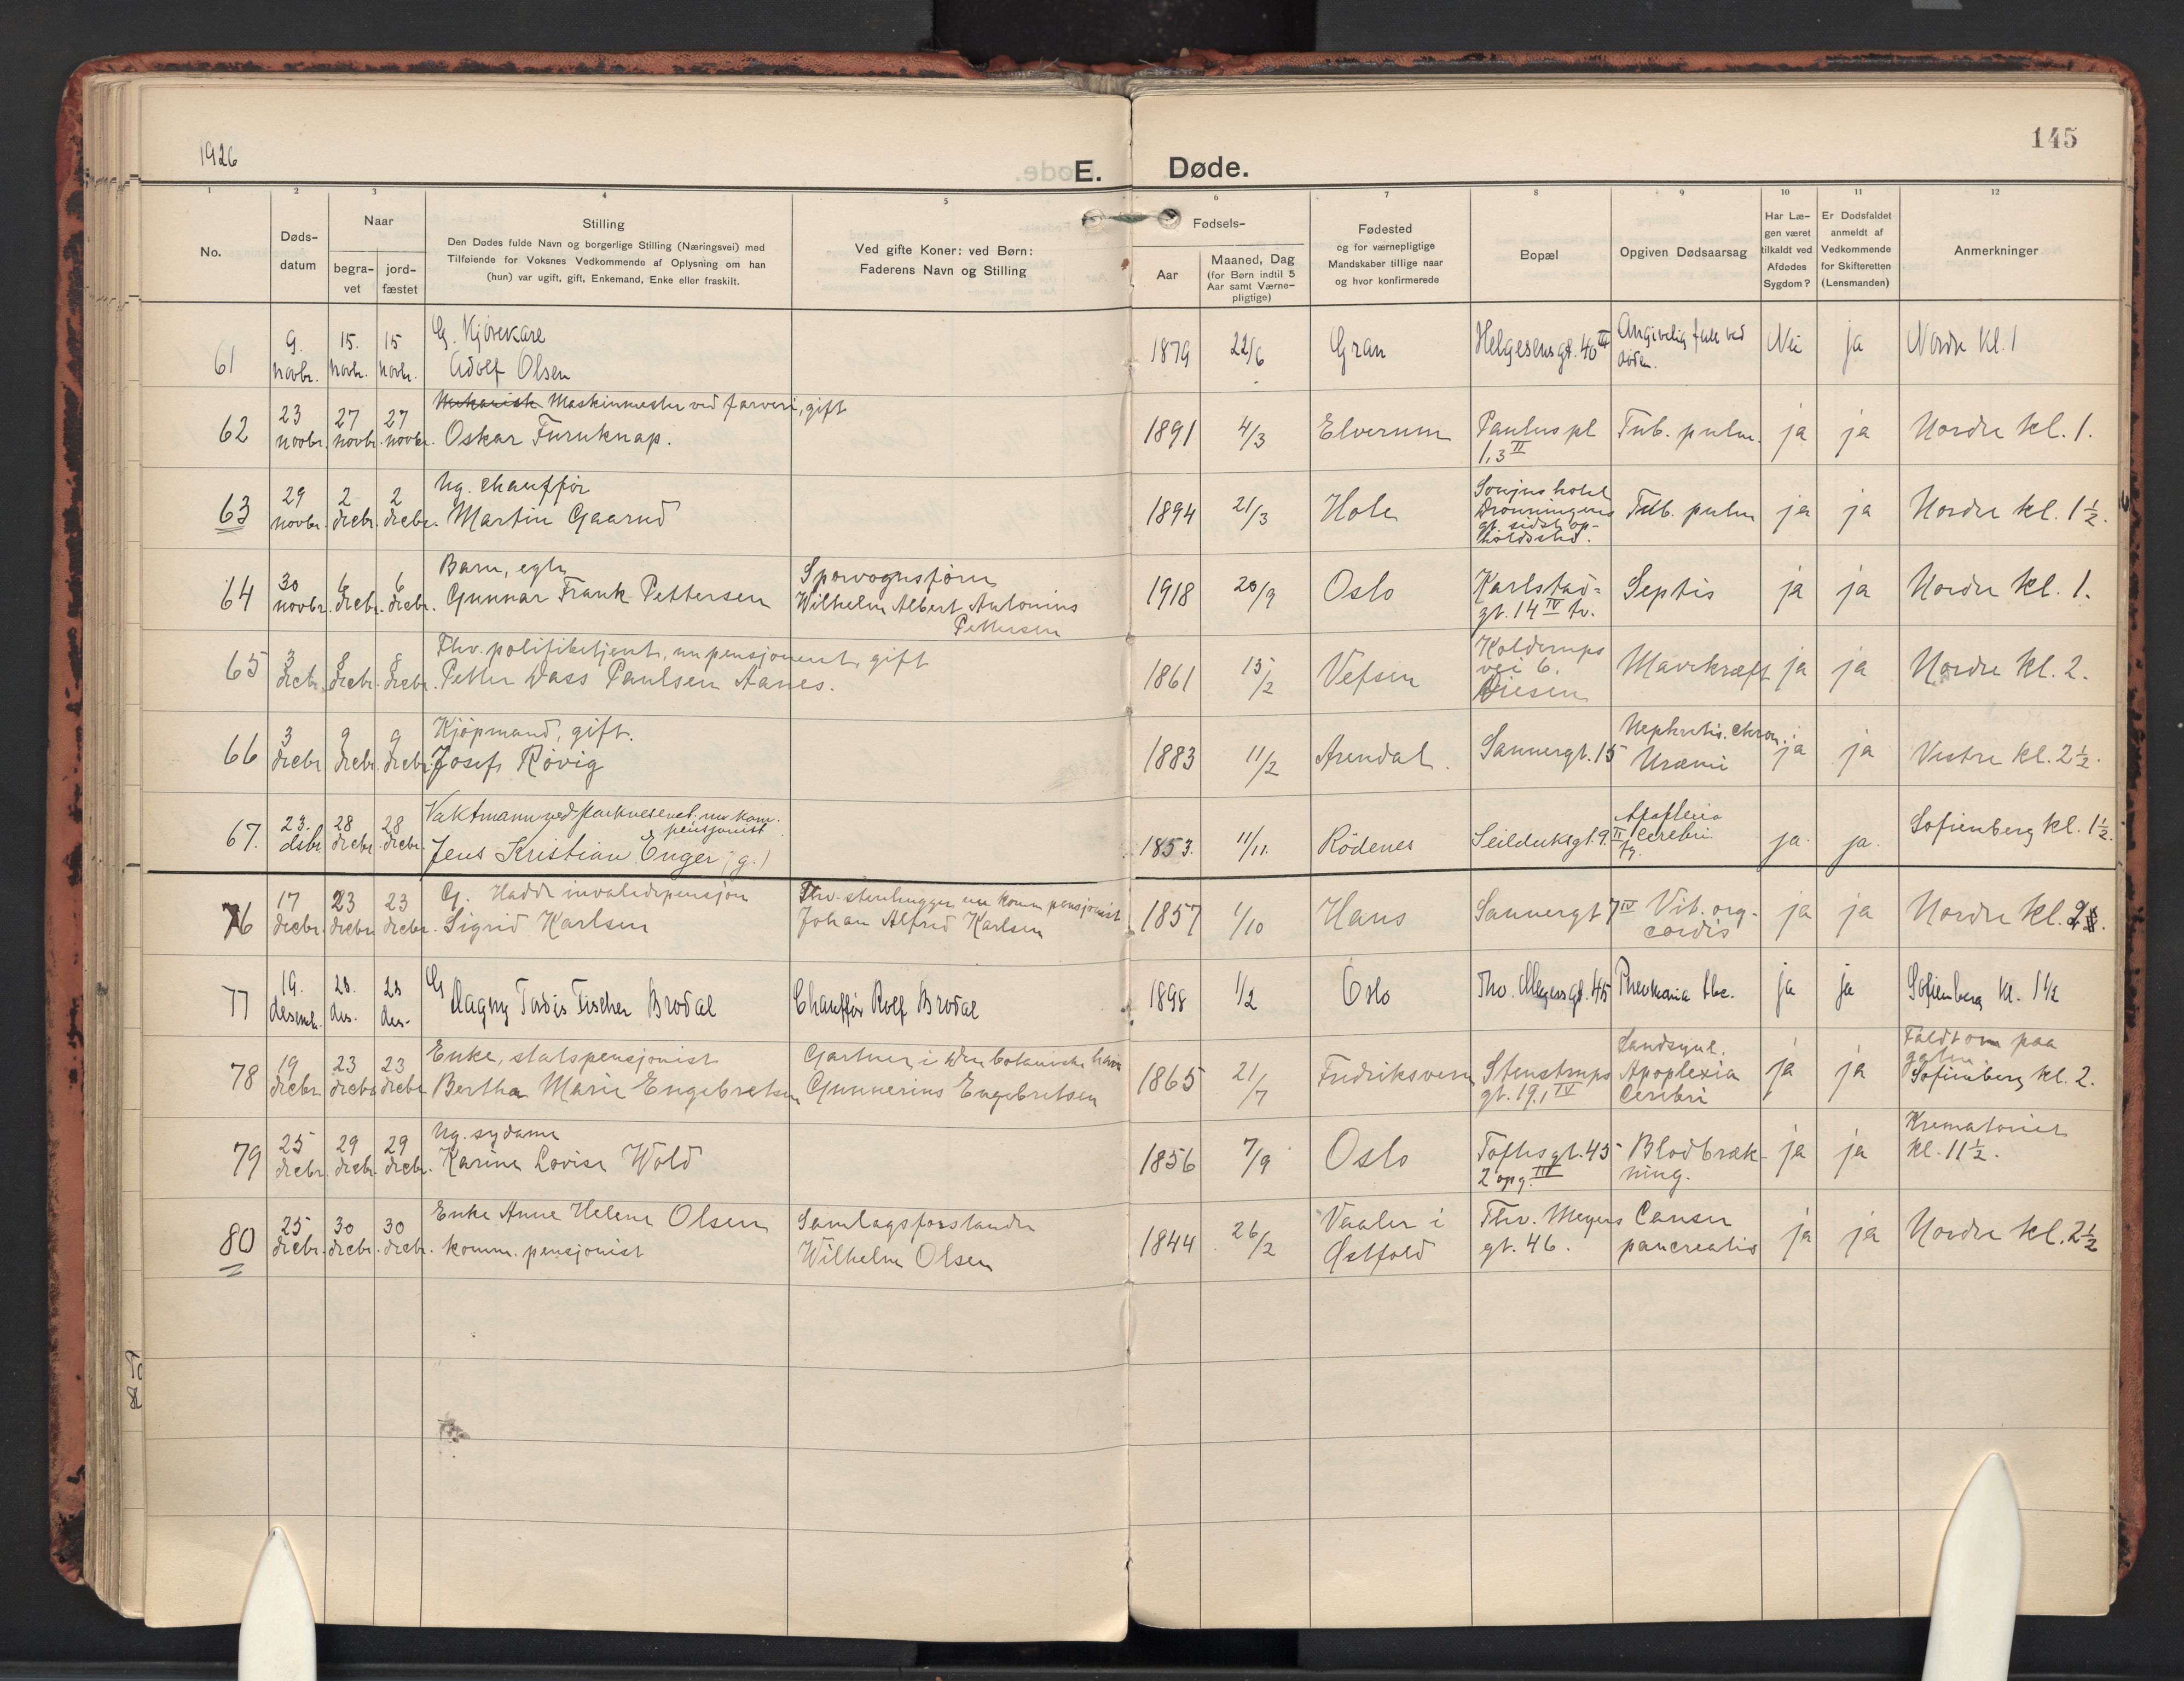 1926
E. Døde.
145
1 2 3 4 5 6 7 8 9 10 11 12
No.
Døds-
datum
Naar
begra-
vet
jord-
fæstet
Stilling
Den Dødes fulde Navn og borgerlige Stilling (Næringsvei) med
Tilføiende for Voksnes Vedkommende af Oplysning om han
(hun) var ugift, gift, Enkemand, Enke eller fraskilt.
Ved gifte Koner: ved Børn:
Faderens Navn og Stilling
Fødsels-
Aar
Maaned, Dag
(for Børn indtil 5
Aar samt Værne-
pligtige)
Fødested
og for værnepligtige
Mandskaber tillige naar
og hvor konfirmerede
Bopæl
Opgiven Dødsaarsag
Har Læ-
gen været
tilkaldt ved
Afdødes
Sygdom?
Er Dødsfaldet
anmeldt af
Vedkommende
for Skifteretten
(Lensmanden)
Anmerkninger
61 9. novbr. 15. novbr. 15 novbr. G. Kjørekarl
Adolf Olsen 1879 22/6 Gran Helgesensgt. 40 III Angivelig ved døden. Nei ja Nordre kl. 1
62 23 novbr. 27 novbr. 27 novbr. Maskinmester ved farveri, gift
Oskar Furuknap. 1891 4/3 Elverum Paulus pl 1,3 II Tub. pulm. ja ja Nordre kl. 1.
63 29 novbr. 2 decbr. 2 decbr. Ug. chauffør
Martin Gaarud 1894 21/3 Hole hotel Dronningens gt. sidst op- holdssted. Tub. pulm ja ja Nordre kl. 1 1/2.
64 30 novbr. 6 decbr. 6 decbr. Barn, egte
Gunnar Frank Pettersen Sporvognsfører
Wilhelm Albert Antonius
Pettersen 1918 20/9 Oslo Karlstad= gt. 14 IV tv. Septis ja ja Nordre kl. 1.
65 3 decbr. 8 decbr. 8 decbr. Fhv. politibetjent, nu pensjonert, gift
Petter Dass Paulsen Aanes. 1861 15/2 Vefsen Kolderups vei 6. Mavekræft ja ja Nordre kl. 2.
66 3 decbr 9 decbr. 9 decbr. Kjøpmand, gift.
Josef Røvig 1883 11/2 Arendal. Sannergt. 15 Nephritis. chron. Uræmi ja ja Vestre kl. 2 1/2.
67. 23. dsbr 28 decbr. 28 decbr. Vaktmann ved parkvesenet. nu kom.
pensjonist
Jens Kristian Enger (g.) 1853. 11/11. Rödenes Seilduksgt. 9. II Apoplexia Cerebri. ja. ja. Sofienberg kl. 1 1/2.
76 17 decbr. 23 decbr. 23 decbr. G. Hadde invalidepensjon
Sigrid Karlsen Fhv. stenhugger nu komm pensjonist
Johan Alfred Karlsen 1857 1/10 Haus Sannergt 7 IV Vit. org. cordis ja ja Nordre kl. 2.
77 19. desemb. 28. des. 28 des. G
Dagny Tordis Fischer Brodal Chauffør Rolf Brodal 1898 1/2 Oslo Thv. Meyersgt. 45 tbc. ja ja Sofienberg kl. 1 1/2
78 19 decbr. 23 decbr 23 decbr Enke, statspensjonist
Bertha Marie Engebretsen Gartner i den botaniske have
Gunnerius Engebretsen 1865 21/7 Fredriksvern Stenstrups gt. 19.1 IV Landsynl. Apoplexia Cerebri ja ja Faldt om paa gaten. Sofienberg kl. 2.
79 25 decbr. 29 decbr. 29 decbr. Ug. sydame
Karine Lovise Wold 1856 7/9 Oslo Toftesgt. 45 2 opg. III Blodbræk- ning. ja ja Krematoriet kl. 11 1/2.
80 25 decbr. 30 decbr. 30 decbr. Enke Anne Helene Olsen
komm. pensjonist Samlagsforstander
Wilhelm Olsen 1844 26/2 Vaaler i Østfold Thv. Meyers gt. 46. Cancer pancreatis ja ja Nordre kl. 2 1/2